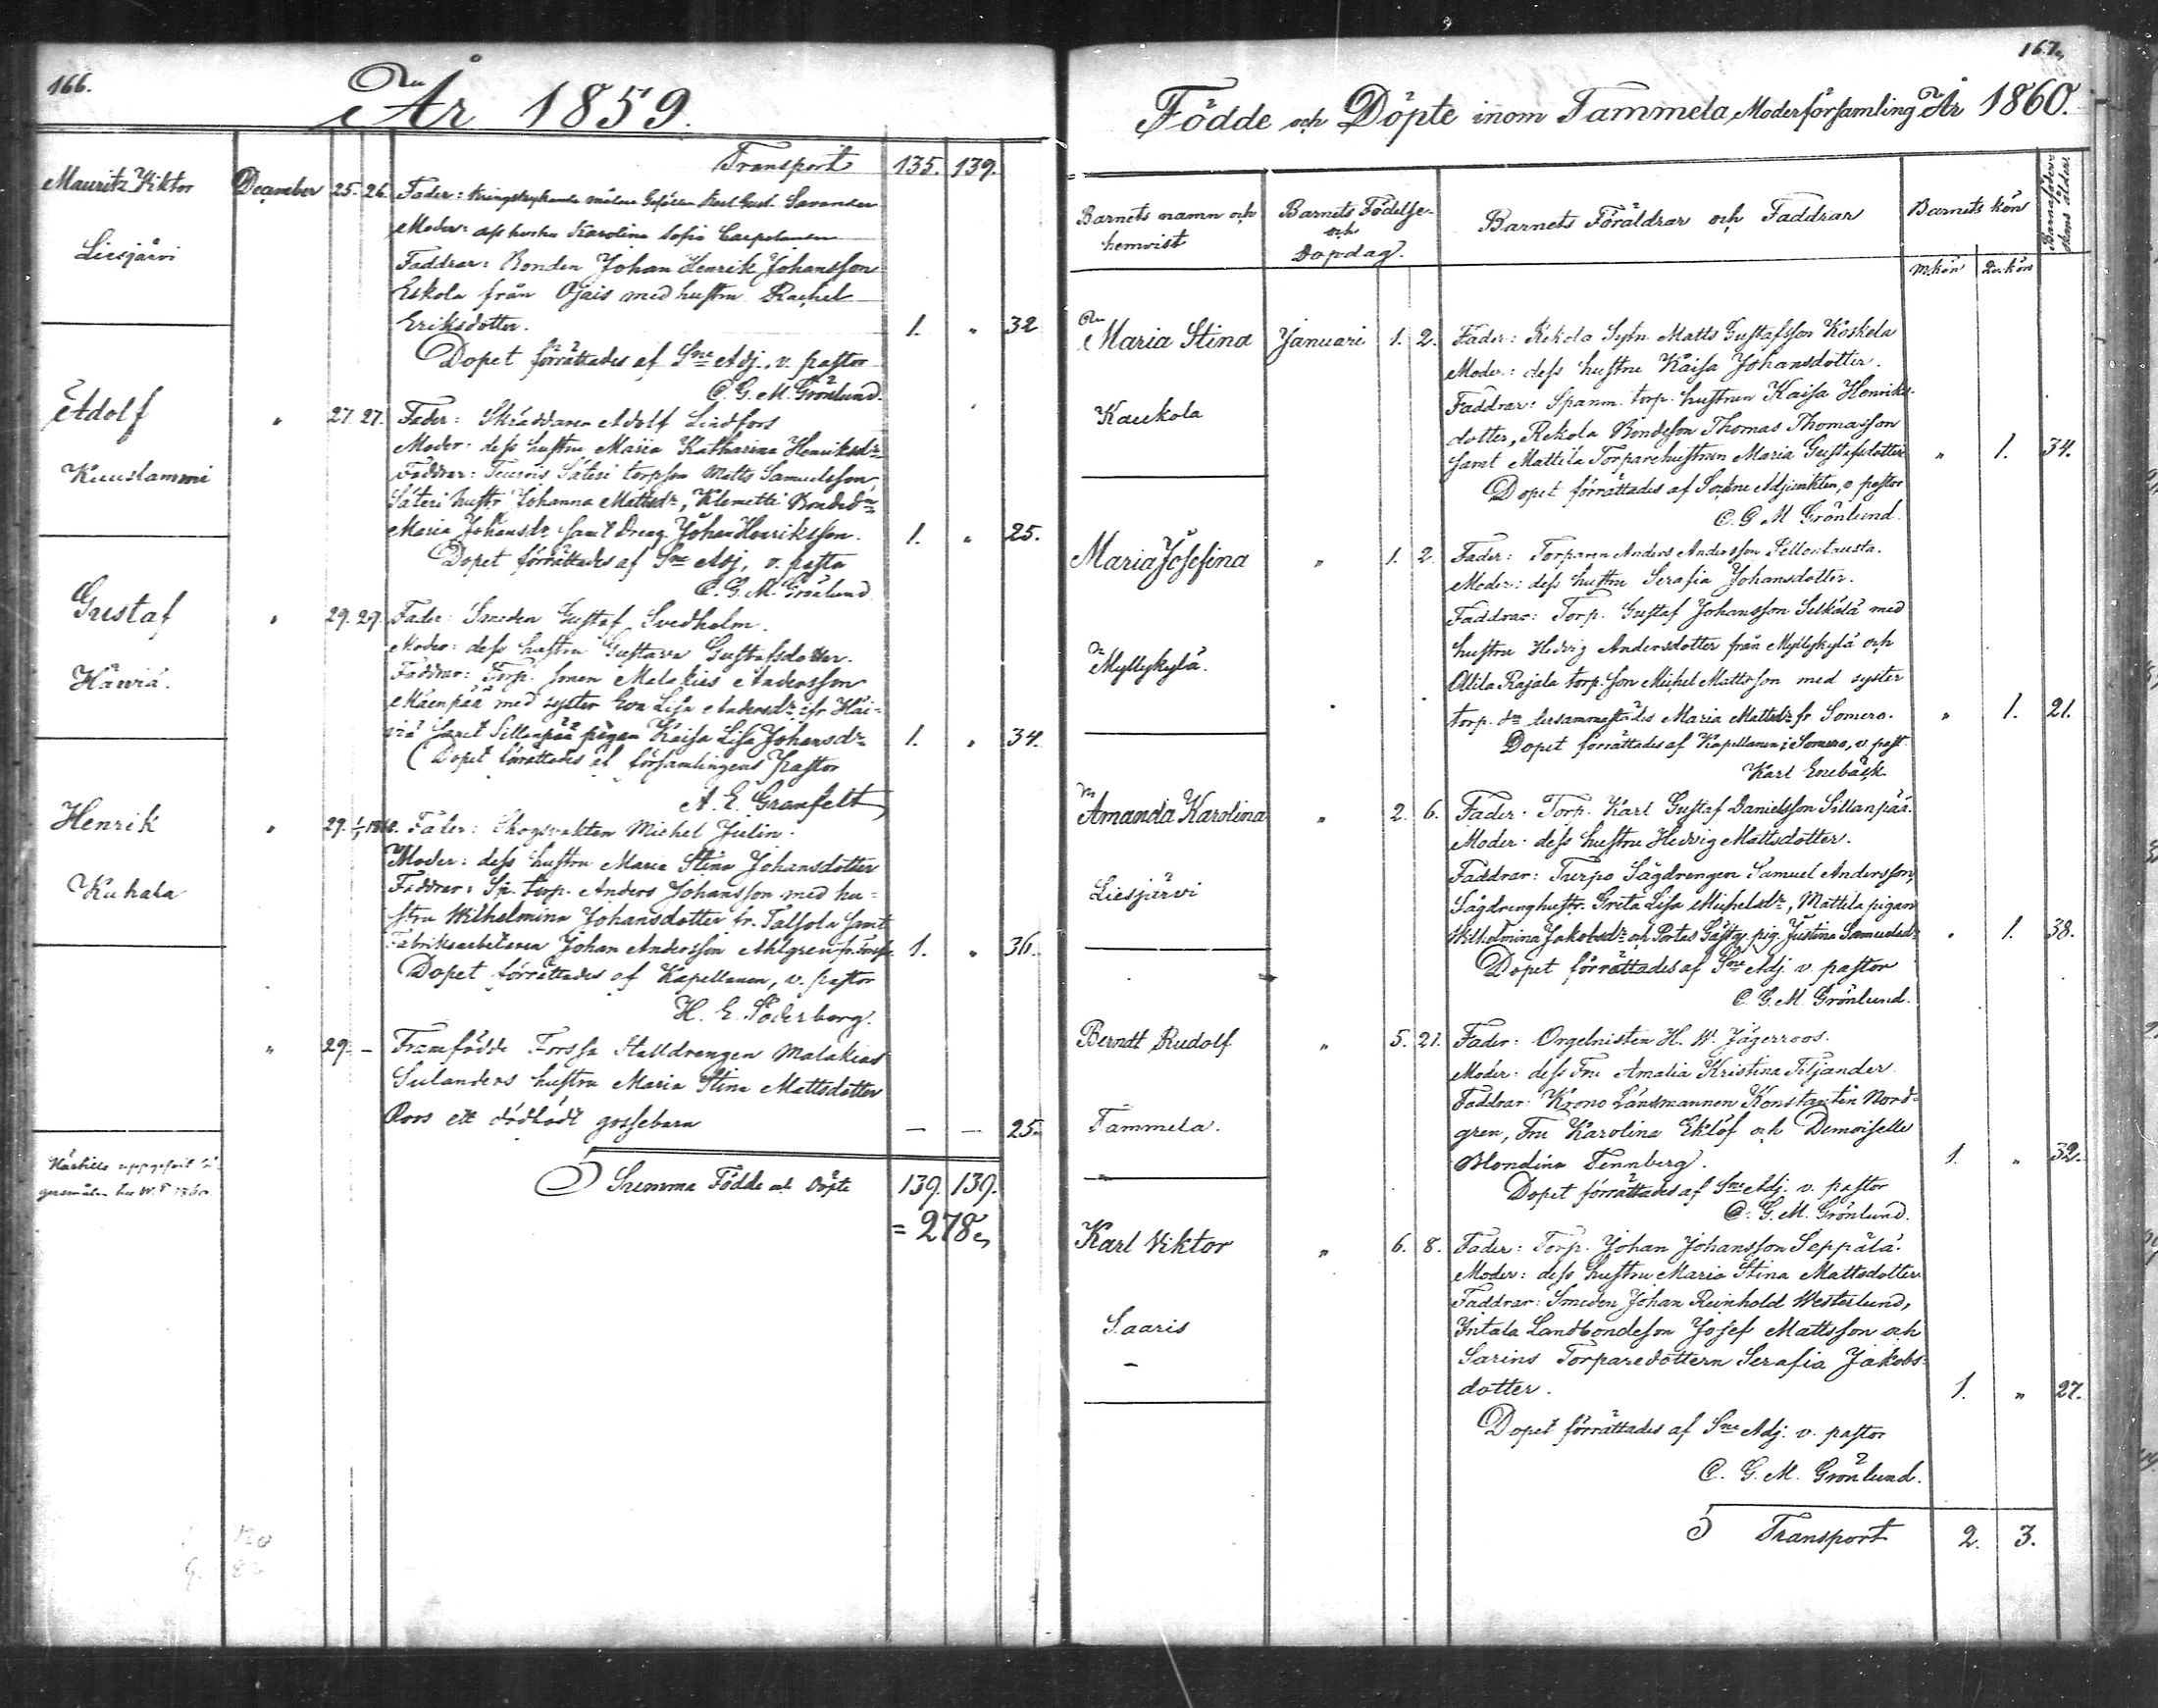 166.
År 1859.
Transport 135. 139.
Mauritz Viktor December 25. 26. Fader: Kringstrykande Karl Gust. Savander
Moder: Karolina Sofia
Liesjärvi
Faddrar: Bonden Johan Henrik Johansson
Eskola från Ojais med hustru Rachel
Eriksdotter. 1. " 32
Dopet förrättades af Sne Adj., v. pastor
C. G. M. Grönlund.
Adolf " 27. 27. Fader: Skräddaren Adolf Lindfors
Moder: dess hustru Maria Katharina Henriksdr
Kuuslammi
Faddrar: Säteri torpson Matts Samuelsson,
Säteri hustr Johanna Mattsdr, Klemetti
Maria Johansdr samt Dreng. Johan Henriksson. 1. " 25.
Dopet förrättades af Sne Adj, v. pastor
C. G. M. Grönlund
Gustaf " 29. 29. Fader: Smeden Gustaf Svedholm.
Moder: dess hustru Gustava Gustafsdotter.
Häiviä.
Faddrar: Torp. sonen Malakias Andersson
Mäenpää med syster Eva Lisa Andersdr ifr Häi-
viä samt Sillanpää pigan Kaisa Lisa Johansdr 1. " 34.
Dopet förrättades af församlingens Pastor
A. E. Granfelt
Henrik " 29. 1/1 1860. Fader: Skogsvakten Michel Julin.
Moder: dess hustru Maria Stina Johansdotter
Kuhala
Faddrar: Sp. torp. Anders Johansson med hu-
stru Wilhelmina Johansdotter fr. Talsola samt
Fabriksarbetaren Johan Andersson Ahlgren fr. 1. " 36.
Dopet förrättades af Kapellanen, v. pastor
H. E. Söderborg.
" 29. – Framfödde Forssa Stalldrengen Malakias
Sulanders hustru Maria Stina Mattsdotter
Roos ett dödfödt gossebarn — — 25.
Summa Födde och Döpte 139. 139.
= 278
167.
Födde och Döpte inom Tammela Moderförsamling År 1860.
Barnets namn och hemvist
Barnets Födelse- och Dopdag.
Barnets Föräldrar och Faddrar
Barnets kön
M.kön Qv.kön
Maria Stina Januari 1. 2. Fader: Rekola Sytn. Matts Gustafsson Koskela
Moder: dess hustru Kaisa Johansdotter.
Kaukola
Faddrar: Spanm. torp. hustrun Kaisa Henriks-
dotter, Rekola Bondeson Thomas Thomasson
samt Mattila Torparehustrun Maria Gustafsdotter " 1. 34.
Dopet förrättades af Sockne Adjunkten, v. pastor
C. G. M Grönlund.
Maria Josefina " 1. 2 Fader: Torparen Anders Andersson Pellontausta.
Moder: dess hustru Serafia Johansdotter.
Faddrar: Torp. Gustaf Johansson Seikälä med
Myllykylä.
hustru Hedvig Andersdotter från Myllykylä och
Ollila Rajala torp. son Michel Mattsson med syster
torp. dr dersammastädes Maria Mattsdr fr. Somero. " 1. 21.
Dopet förrättades af Kapellanen i Somero, v. past.
Karl Enebäck
Amanda Karolina " 2. 6. Fader: Torp. Karl Gustaf Danielsson Sillanpää.
Moder: dess hustru Hedvig Mattsdotter.
Liesjärvi
Faddrar: Turpo Sågdrengen Samuel Andersson,
Sågdrenghustr. Greta Lisa Michelsdr, Mattila pigan
Wilhelmina Jakobsdr och Portas Gästg. pig. Justina Samuelsdr " 1. 38.
Dopet förrättades af Sne Adj. v. pastor
C. G. M. Grönlund.
Berndt Rudolf " 5. 21. Fader: Orgelnisten H. W. Jägerroos.
Moder: dess Fru Amalia Kristina Tiljander.
Faddrar: Krono Länsmannen Konstantin Nord-
Tammela.
gren, Fru Karolina Eklöf och Demoiselle
Blondina Tennberg. 1. " 32.
Dopet förrättades af Sne Adj. v. pastor
C. G. M. Grönlund.
Karl Viktor " 6. 8. Fader: Torp. Johan Johansson Seppälä.
Moder: dess hustru Maria Stina Mattsdotter
Faddrar: Smeden Johan Reinhold Westerlund,
Saaris
Intala Landbondeson Josef Mattsson och
Sarins Torparedottern Serafia Jakobs-
dotter. 1. " 27.
Dopet förrättades af Sne Adj. v. pastor
C. G. M. Grönlund.
Transport 2. 3.